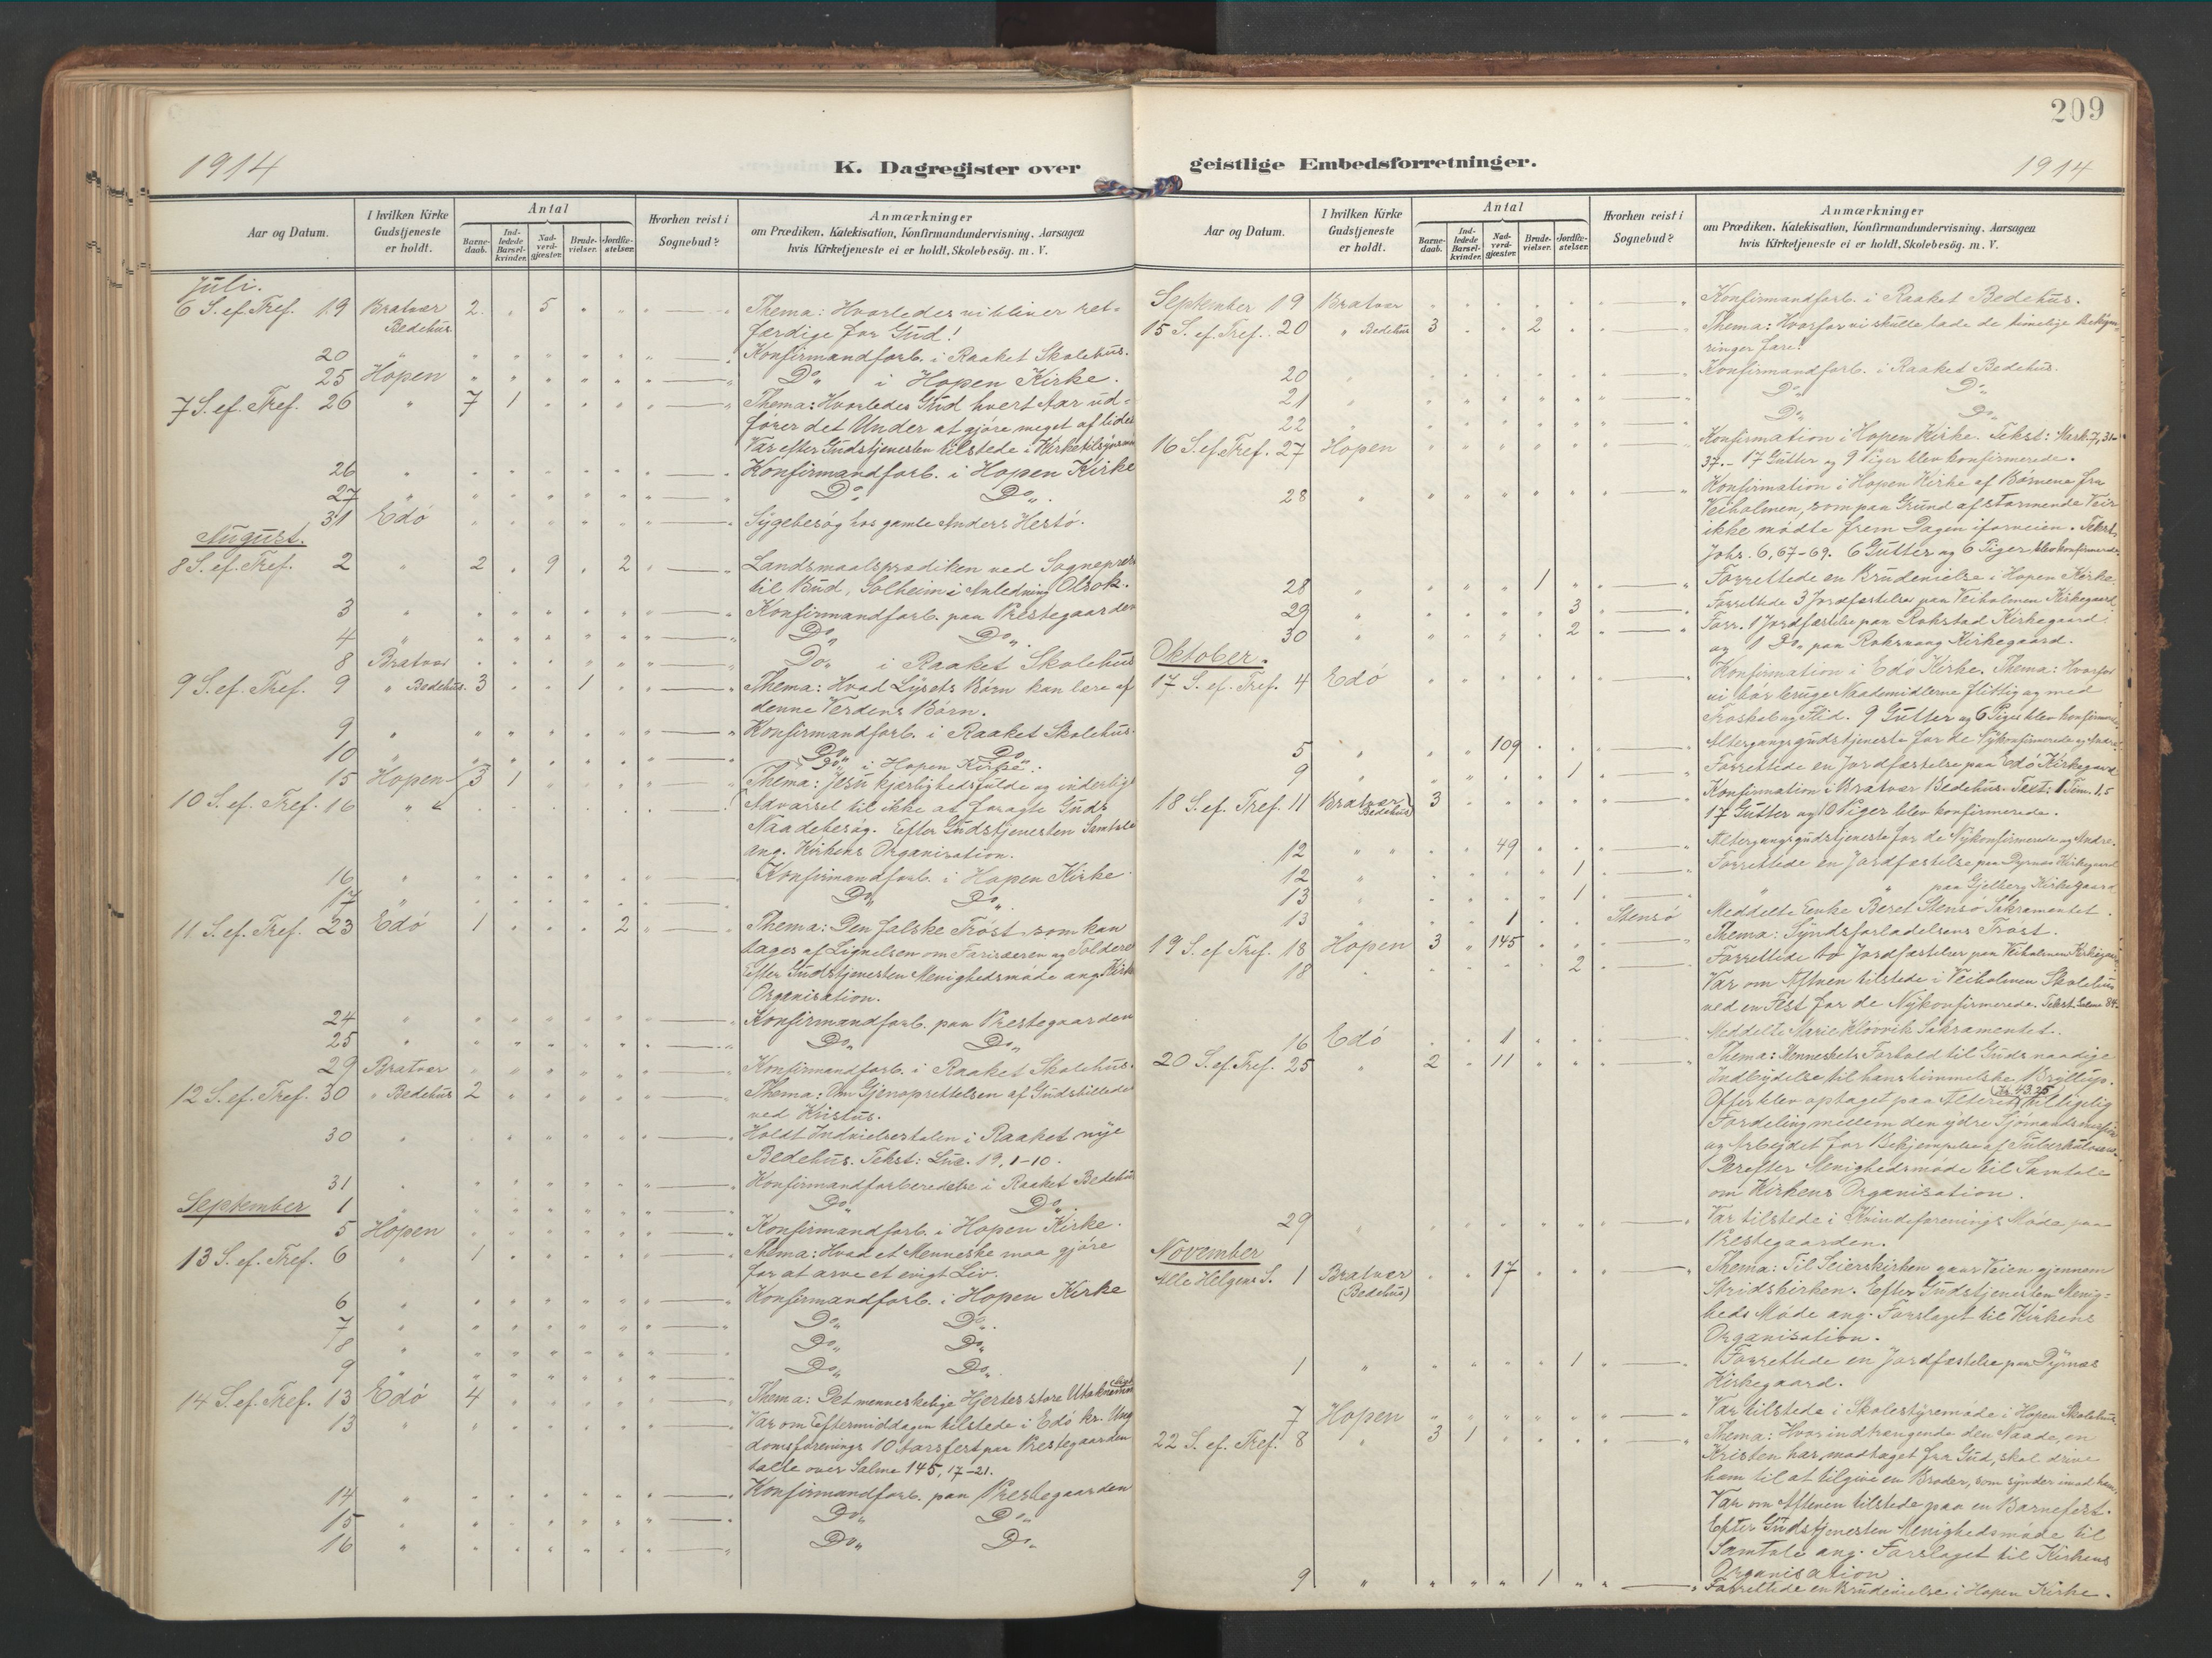 1914
K. Dagregister over
Aar og Datum.
I hvilken Kirke Gudstjeneste er holdt.
Antal
Barnedaab.
Indledede Barselkvinder.
Nadverdgjæster.
Brudevielser.
Jordfæstelser.
Hvorhen reist i Sognebud?
Anmærkninger
om Prædiken, Katekisation, Konfirmandundervisning, Aarsagen
hvis Kirketjeneste ei er holdt, Skolebesög. m. V.
Juli.
6 S. ef. Tref. 19 Bratvær 2 " 5 Thema: Hvorledes vi bliver ret-
Bedehus. færdige for Gud!
20 " Konfirmandforb. i Raaket Skolehus.
25 Hopen Do i Hopen Kirke.
7 S. ef. Tref. 26 " 7 1 Thema: Hvorledes Gud hvert Aar ud-
fører det Under at gjøre meget af lidet
Var efter Gudstjenesten tilstede i
26 " Konfirmandforb. i Hopen Kirke
27 " Do Do
31 Edö Sygebesøg hos gamle Anders Hestö.
August.
8 S. ef. Tref. 2 " 2 " 9 " 2 Landsmaalsprædiken ved Sogneprest
til Bud, Solheim i Anledning Olsok.
3 " Konfirmandforb. paa Prestegaarden
4 " Do Do
8 Bratvær Do i Raaket Skolehus
9 S. ef. Tref. 9 " Bedehus. 3 1 Thema: Hvad Lysets Børn kan lære af
denne Verdens Børn.
9 " Konfirmandforb. i Raaket Skolehus.
10 " Do Do
15 Hopen 3 1 Do i Hopen Kirke.
10 S. ef. Tref. 16 " Thema: Jesu kjærlighedsfulde og inderlige
Advarsel til ikke at foragte Guds
Naadebesøg. Efter Gudstjenesten Samtale
ang. Kirkens Organisation.
16 " Konfirmandforb. i Hopen Kirke.
17 " Do Do
11 S. ef. Tref. 23 Edö 1 2 Thema: Den falske Trøst som kan
tages af Lignelsen om Farisæeren og Tolderen
Efter Gudstjenesten Menighedsmøde ang. Kirk.
Organisation.
24 " Konfirmandforb. paa Prestegaarden
25 " Do Do
29 Bratvær Konfirmandforb. i Raaket Skolehus.
12 S. ef. Tref. 30 " Bedehus 2 Thema: Om Gjenoprettelsen af Gudsbilledet
ved Kristus.
30 " Holdt Indvielsestalen i Raaket nye
Bedehus. Tekst: Luc. 19, 1-10.
31 " Konfirmandforberedelse i Raaket Bedehus
September 1 " Do Do
5 Hopen Konfirmandforb. i Hopen Kirke.
13 S. ef. Tref. 6 " 1 Thema: Hvad et Menneske maa gjøre
for at arve et evigt Liv.
6 " Konfirmandforb. i Hopen Kirke
7 " Do Do
8 " Do Do
9 " Do Do
14 S. ef. Tref. 13 Edö 4 Thema: Det menneskelige Hjertes store Utaknemmelighed
13 " Var om Eftermiddagen tilstede i Edö kr. Ung
domsforenings 10 Aarsfest paa Prestegaarden
talte over Salme 145, 17-21.
14 " Konfirmandforb. paa Prestegaarden
15 " Do Do
16 " Do Do
209
geistlige Embedsforretninger.
1914
Aar og Datum.
I hvilken Kirke Gudstjeneste er holdt.
Antal
Barnedaab.
Indledede Barselkvinder.
Nadverdgjæster.
Brudevielser.
Jordfæstelser.
Hvorhen reist i Sognebud?
Anmærkninger
om Prædiken, Katekisation, Konfirmandundervisning, Aarsagen
hvis Kirketjeneste ei er holdt, Skolebesög. m. V.
September 19 Bratvær Konfirmandforb. i Raaket Bedehus.
15 S. ef. Tref. 20 " Bedehus 3 2 Thema: Hvorfor vi skulle lade de timelige Bekym-
ringer fare!
20 " Konfirmandforb. i Raaket Bedehus.
21 " Do Do
22 " Do Do
16 S. ef. Tref. 27 Hopen Konfirmation i Hopen Kirke. Tekst: Mark. 7, 31-
37. - 17 Gutter og 9 Piger blev konfirmerede.
28 " Konfirmation i Hopen Kirke af Børnene fra
Veiholmen, som paa Grund af stormende Veir
ikke mødte frem Dagen iforveien. Tekst
Johs. 6, 67-69. 6 Gutter og 6 Piger blev konfirmerede
28 " 1 Forrettede en Brudevielse i Hopen Kirke
29 " 3 Forrettede 3 Jordfæstelser paa Veiholmen Kirkegaard.
30 " 2 Forr. 1 Jordfæstelse paa Rokstad Kirkegaard
og 1 Do paa Kirkegaard.
Oktober.
17 S. ef. Tref. 4 Edö Konfirmation i Edö Kirke. Thema: Hvorfor
vi bør bruge Naademidlerne flittig og med
Troskab og Flid. 9 Gutter og 6 Piger blev konfirmerede
5 " 109 Altergangsgudstjeneste for de Nykonfirmerede og Andre.
9 " 1 Forrettede en Jordfæstelse paa Edö Kirkegaard
18 S. ef. Tref. 11 Bratvær (Bedehus) 3 Konfirmation i Bratvær Bedehus. Text: 1 Tim. 1, 5
17 Gutter og 10 Piger blev konfirmerede.
12 " " 49 Altergangsgudstjeneste for de Nykonfirmerede og Andre.
12 " 1 Forrettede en Jordfæstelse paa Dyrnæs Kirkegaard
13 " 1 " " paa Gjelberg Kirkegaard
13 " 1 Stensö Meddelte Enke Beret Stensö Sakramentet.
19 S. ef. Tref. 18 Hopen 3 " 145 Thema: Syndsforladelsens Trøst.
18 " 2 Forrettede to Jordfæstelser paa Veiholmen Kirkegaard
Var om Aftnen tilstede i Veiholmen Skolehus
ved en Fest for de Nykonfirmerede. Tekst Salme 84.
16 Edö 1 Meddelte Marie Klovvik Sakramentet.
20 S. ef. Tref. 25 " 2 11 Thema: Menneskets Forhold til Guds naadige
Indbydelse til hans himmelske Bryllup.
Offer blev optaget paa Alteret (Kr. 43,25) til ligelig
Fordeling mellem den ydre Sjømandsmission
og Arbeidet for Bekjempelse af Tuberkulosen.
Derefter Menighedsmøde til Samtale
om Kirkens Organisation.
29 " Var tilstede i Kvindeforenings Møde paa
Prestegaarden.
November
Alle Helgens S. 1 Bratvær (Bedehus) 17 Thema: Til Seierskirken gaar Veien gjennem
Stridskirken. Efter Gudstjenesten Menig-
heds Møde ang. Forslaget til Kirkens
Organisation.
1 " 1 Forrettede en Jordfæstelse paa Dyrnæs
Kirkegaard.
7 Hopen Var tilstede i Skolestyremøde i Hopen Skolehus.
22 S. ef. Tref. 8 " 3 1 Thema: Hvor indtrængende den Naade, en
Kristen har modtaget fra Gud, skal drive
ham til at tilgive en Broder, som synder imod ham.
Var om Aftenen tilstede paa en Barnefest.
Efter Gudstjenesten Menighedsmøde til
Samtale ang. Forslaget til Kirkens
Organisation
9 " 1 Forrettede en Brudevielse i Hopen Kirke.